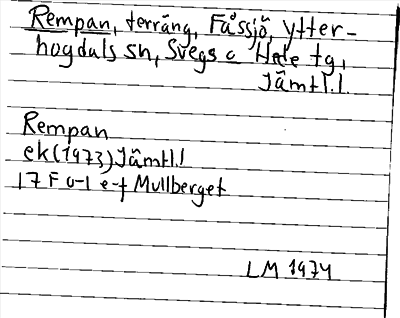 Rempan, terräng, Fåssjö, Ytter-
hogdals sn, Svegs o Hede tg,
Jämtl.l
Rempan
ek (1973) Jämtl.l
17 F 0-1 e-f Mullberget
LM 1974